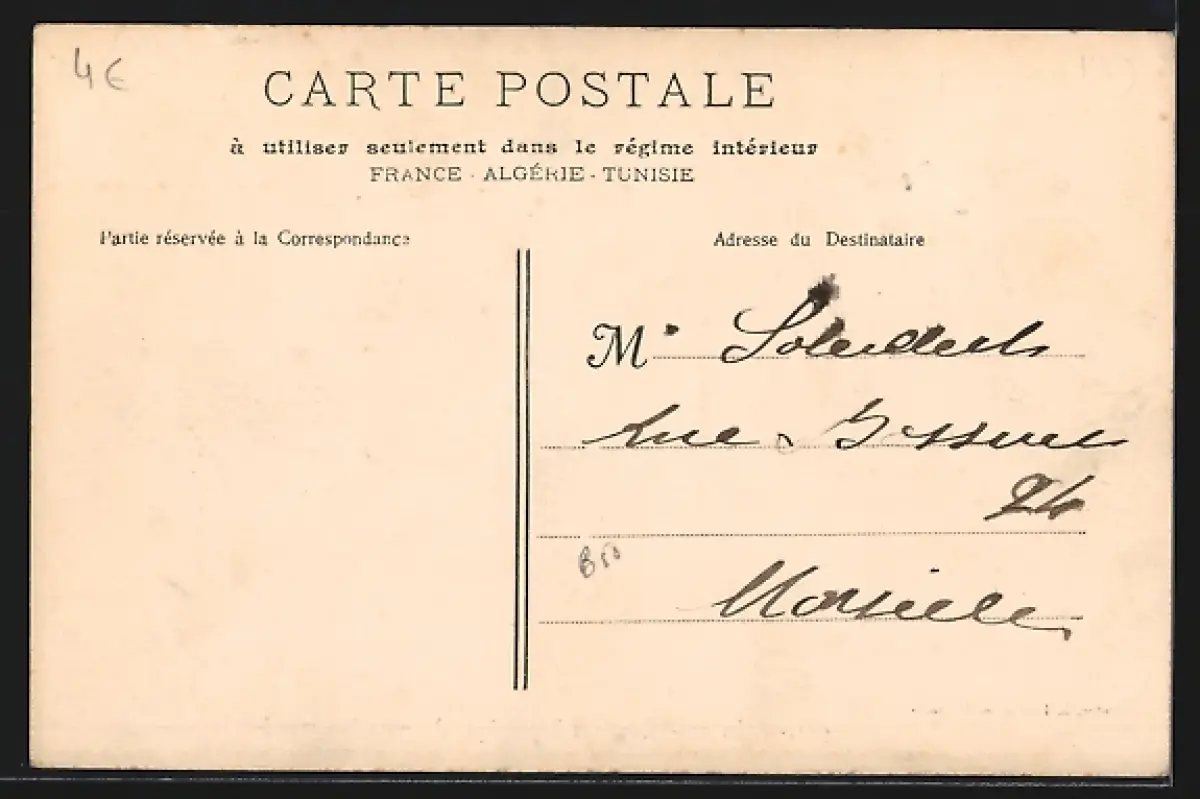 4€
CARTE POSTALE
à utiliser seulement dans le régime intérieur
FRANCE - ALGÉRIE - TUNISIE
Partie réservée à la Correspondance
Adresse du Destinataire
M.
Rue
24
Marseille